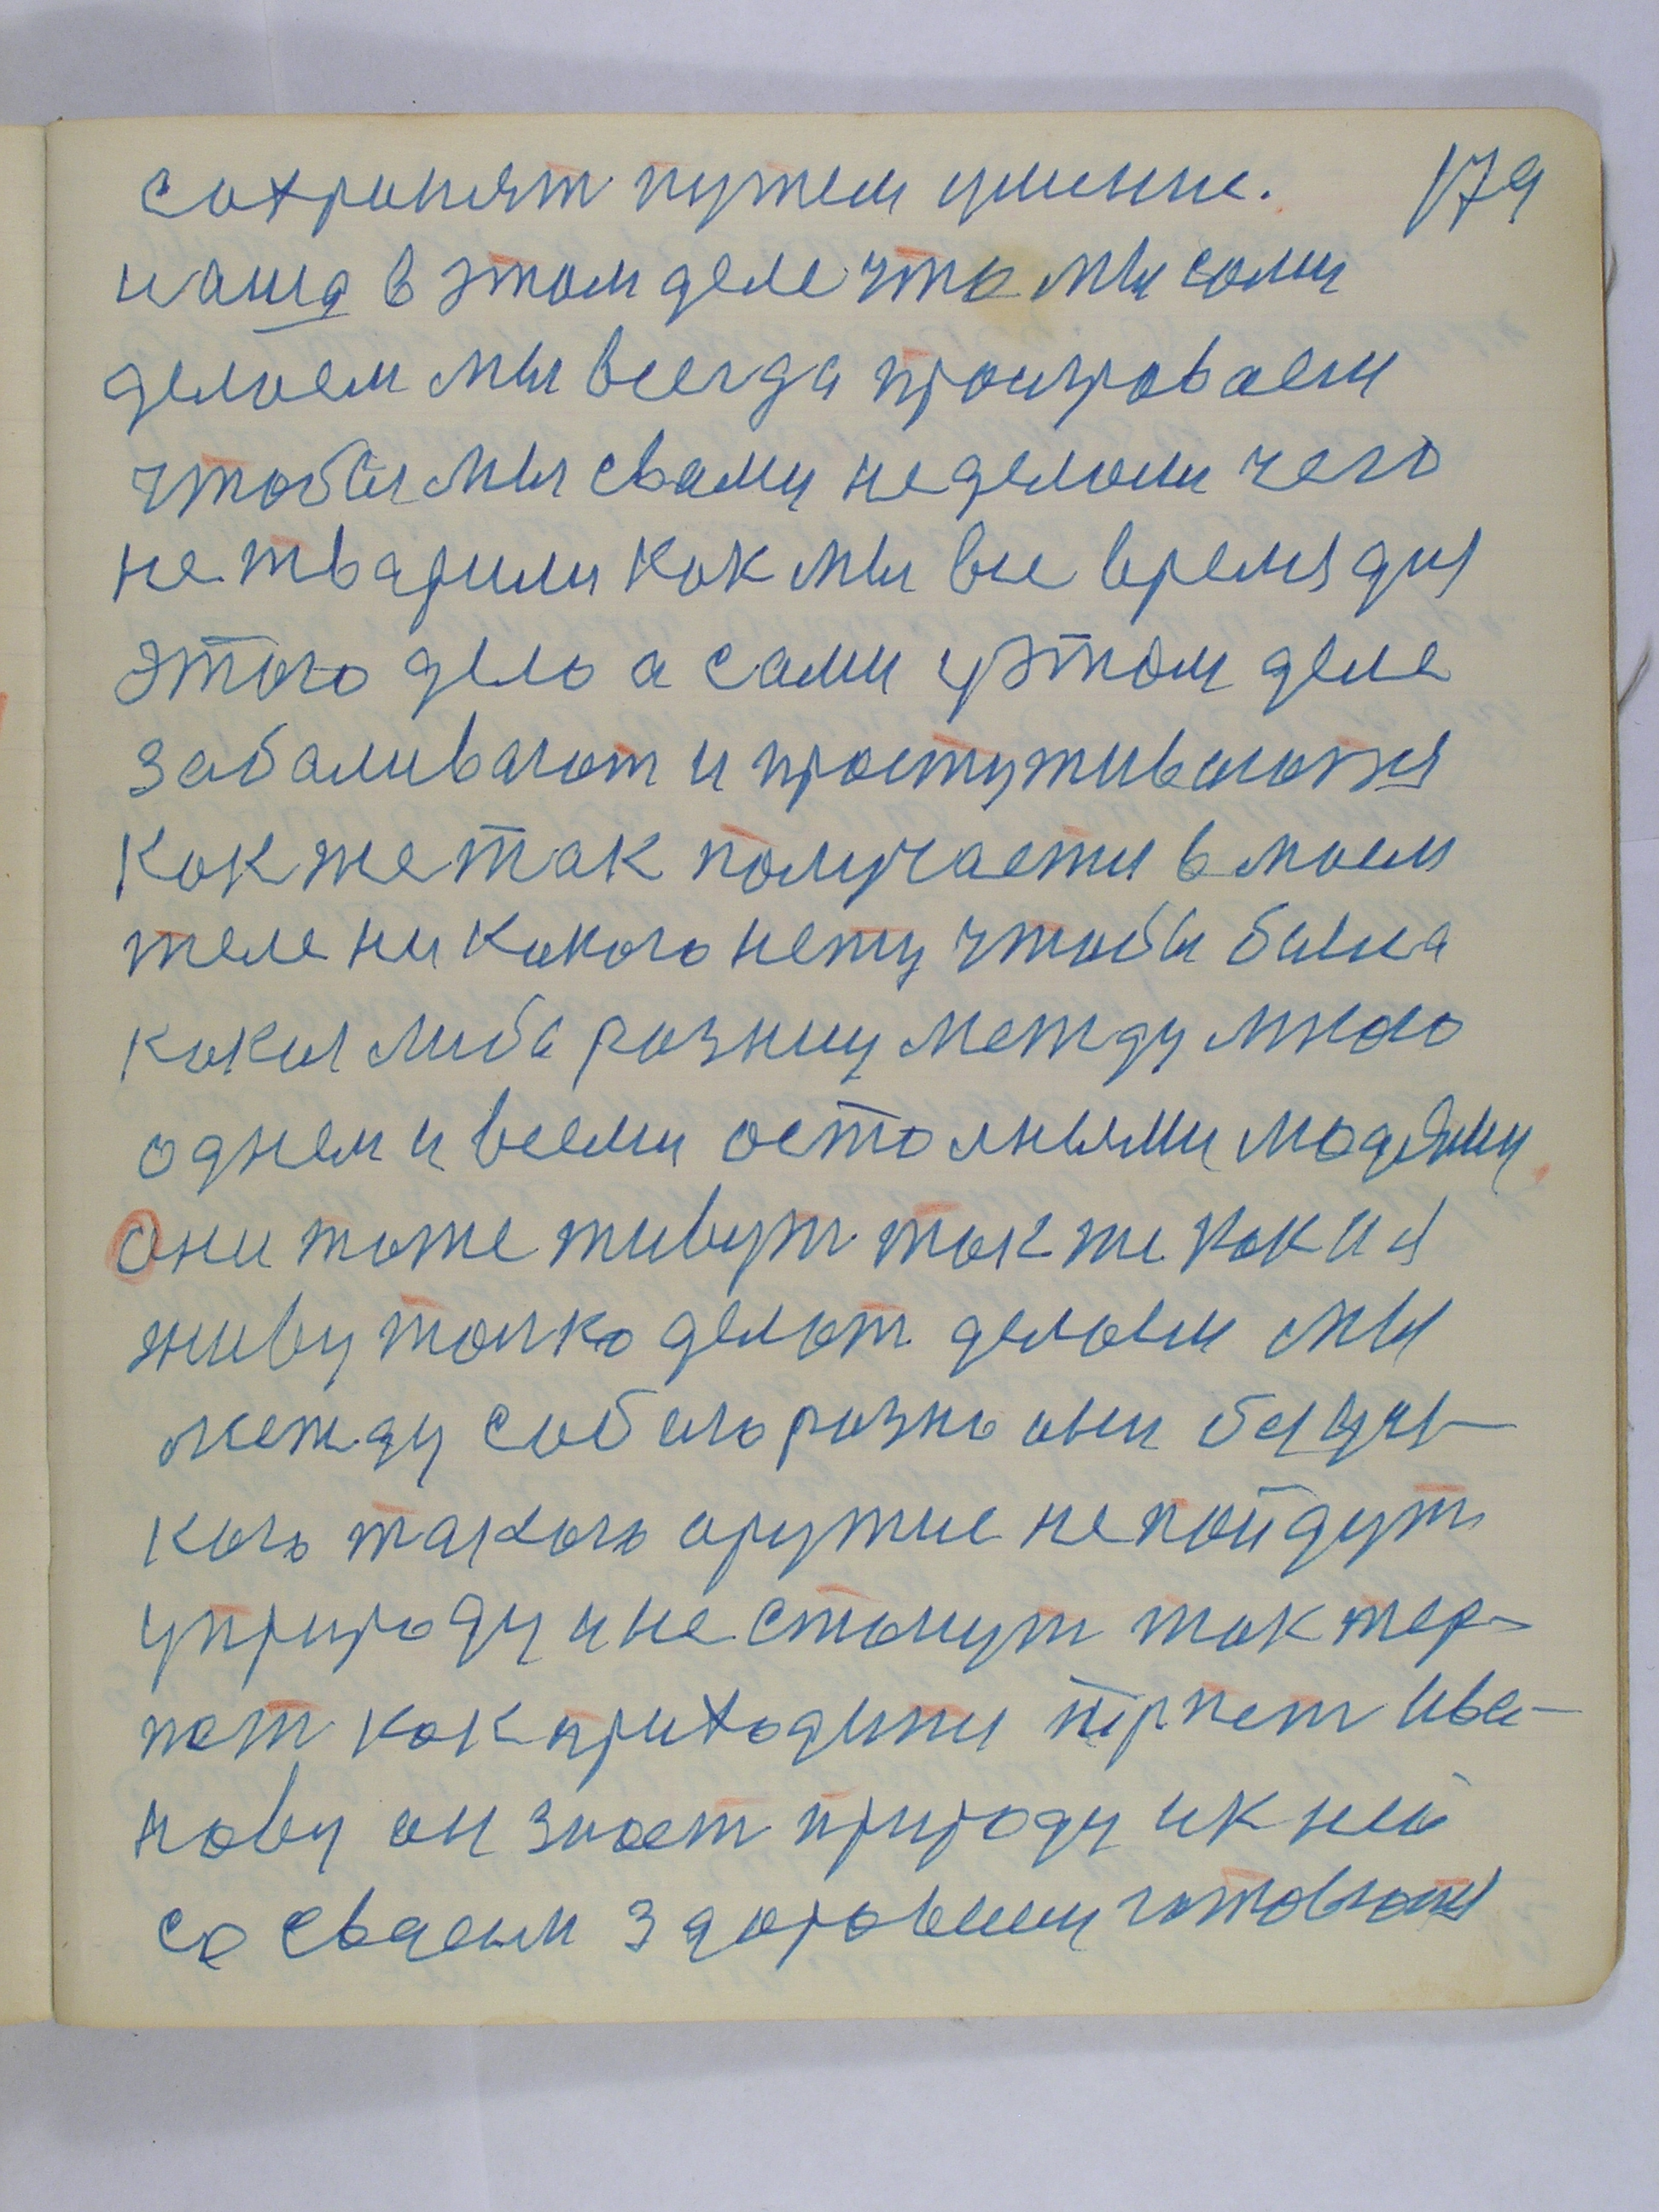 сохранят путем умение. 179
наша в этом деле что мы сами
делаем мы всегда проигроваем
чтобы мы свами неделали чего
не тварили как мы все время для
этого дело а сами уэтом деле
забаливают и простуживаются
как же так получаети в моем
теле ни какого нету чтобы была
какая либа разницу между мною
однем и всеми осталными людями
Они тоже живут так же как и я
живу толко делат делаем мы
между собою разно они без уся-
кого такого оружие не пойдут
уприроду и не станут так тер-
пет как приходити терпет Ива-
нову он знает природу и к ней
со сваем здоровием готовлюся